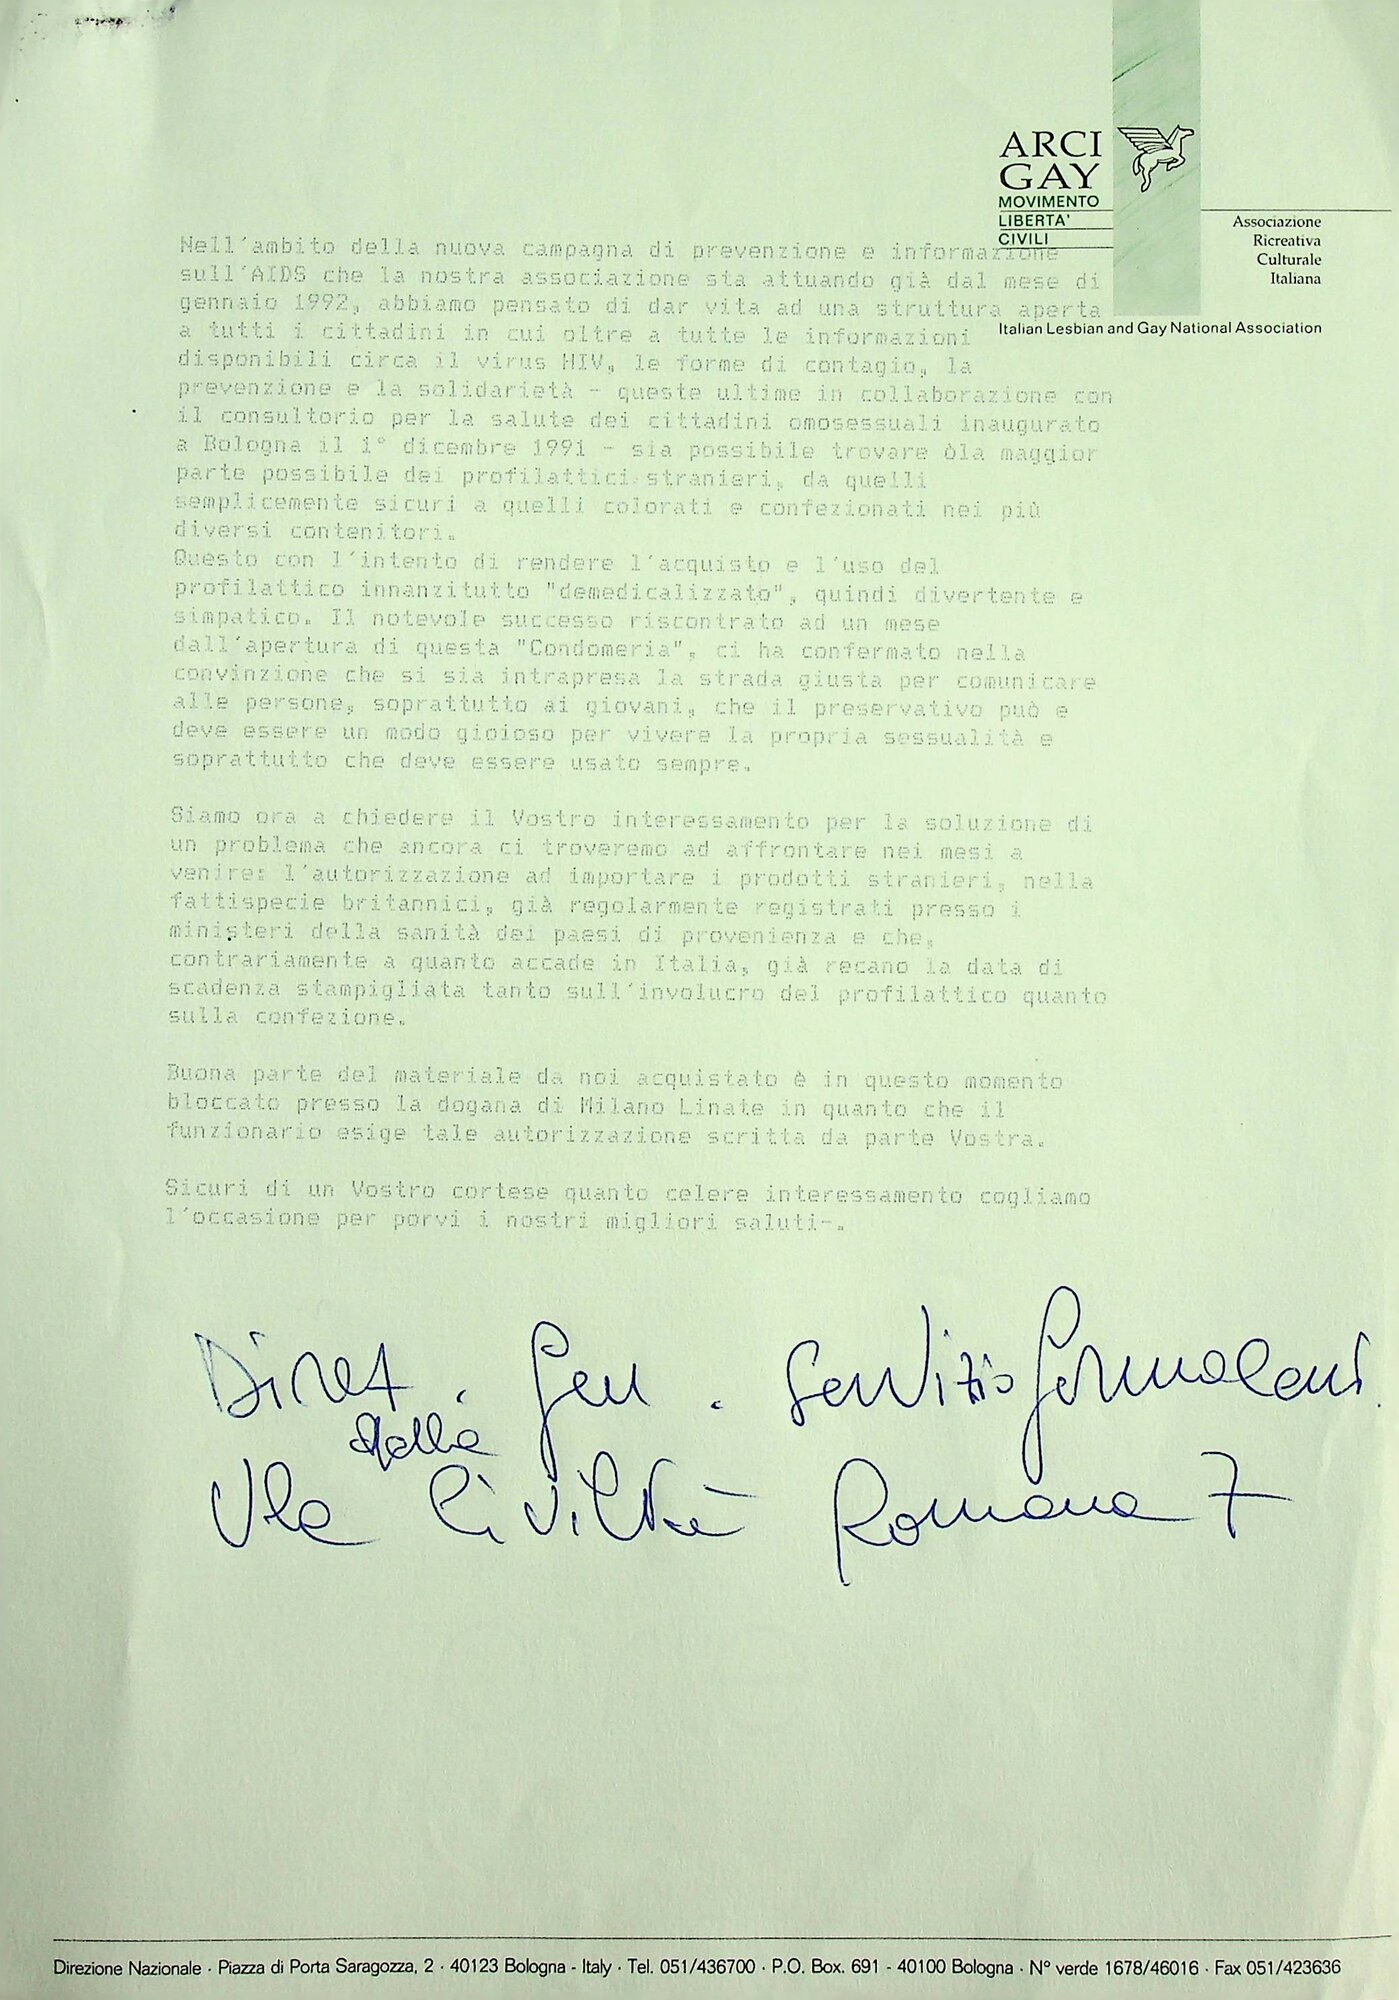 ARCI
GAY
MOVIMENTO
LIBERTA'
CIVILI
Associazione
Ricreativa
Culturale
Italiana
Italian Lesbian and Gay National Association
Nell'ambito della nuova campagna di prevenzione e informazione
sull'AIDS che la nostra associazione sta attuando già dal mese di
gennaio 1992, abbiamo pensato di dar vita ad una struttura aperta
a tutti i cittadini in cui oltre a tutte le informazioni
disponibili circa il virus HIV, le forme di contagio, la
prevenzione e la solidarietà - queste ultime in collaborazione con
il consultorio per la salute dei cittadini omosessuali inaugurato
a Bologna il 1° dicembre 1991 - sia possibile trovare òla maggior
parte possibile dei profilattici stranieri, da quelli
semplicemente sicuri a quelli colorati e confezionati nei più
diversi contenitori.
Questo con l'intento di rendere l'acquisto e l'uso del
profilattico innanzitutto "demedicalizzato", quindi divertente e
simpatico. Il notevole successo riscontrato ad un mese
dall'apertura di questa "Condomeria", ci ha confermato nella
convinzione che si sia intrapresa la strada giusta per comunicare
alle persone, soprattutto ai giovani, che il preservativo può e
deve essere un modo gioioso per vivere la propria sessualità e
soprattutto che deve essere usato sempre.
Siamo ora a chiedere il Vostro interessamento per la soluzione di
un problema che ancora ci troveremo ad affrontare nei mesi a
venire: l'autorizzazione ad importare i prodotti stranieri, nella
fattispecie britannici, già regolarmente registrati presso i
ministeri della sanità dei paesi di provenienza e che,
contrariamente a quanto accade in Italia, già recano la data di
scadenza stampigliata tanto sull'involucro del profilattico quanto
sulla confezione.
Buona parte del materiale da noi acquistato è in questo momento
bloccato presso la dogana di Milano Linate in quanto che il
funzionario esige tale autorizzazione scritta da parte Vostra.
Sicuri di un Vostro cortese quanto celere interessamento cogliamo
l'occasione per porvi i nostri migliori saluti-.
Diret. Gen. Servizio
della
Vle Civiltà Romana 7
Direzione Nazionale · Piazza di Porta Saragozza, 2 · 40123 Bologna - Italy · Tel. 051/436700 · P.O. Box. 691 - 40100 Bologna · N° verde 1678/46016 · Fax 051/423636